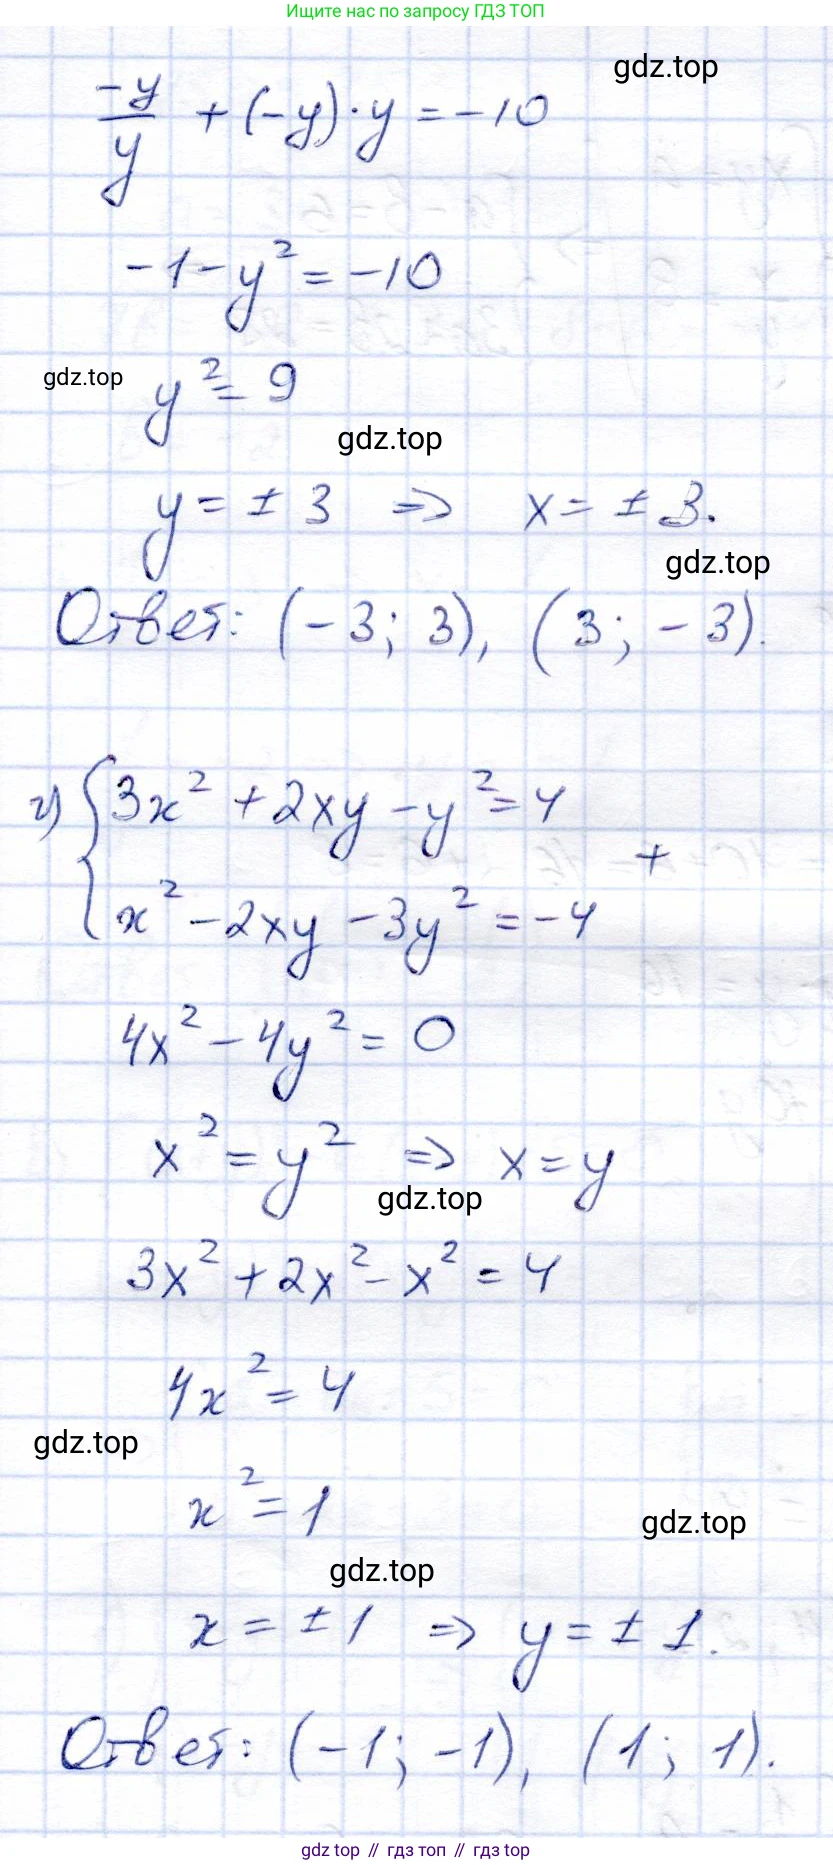 Ищите нас по запросу ГДЗ ТОП
gdz.top
-y/y + (-y)·y = -10
-1 - y² = -10
gdz.top
y² = 9
gdz.top
y = ± 3 => x = ± 3.
gdz.top
Ответ: (-3; 3), (3; -3).
г) { 3x² + 2xy - y² = 4
+
x² - 2xy - 3y² = -4
4x² - 4y² = 0
x² = y² => x = y
gdz.top
3x² + 2x² - x² = 4
4x² = 4
gdz.top
x² = 1
gdz.top
gdz.top
x = ± 1 => y = ± 1.
Ответ: (-1; -1), (1; 1).
gdz top // гдз топ // гдз top